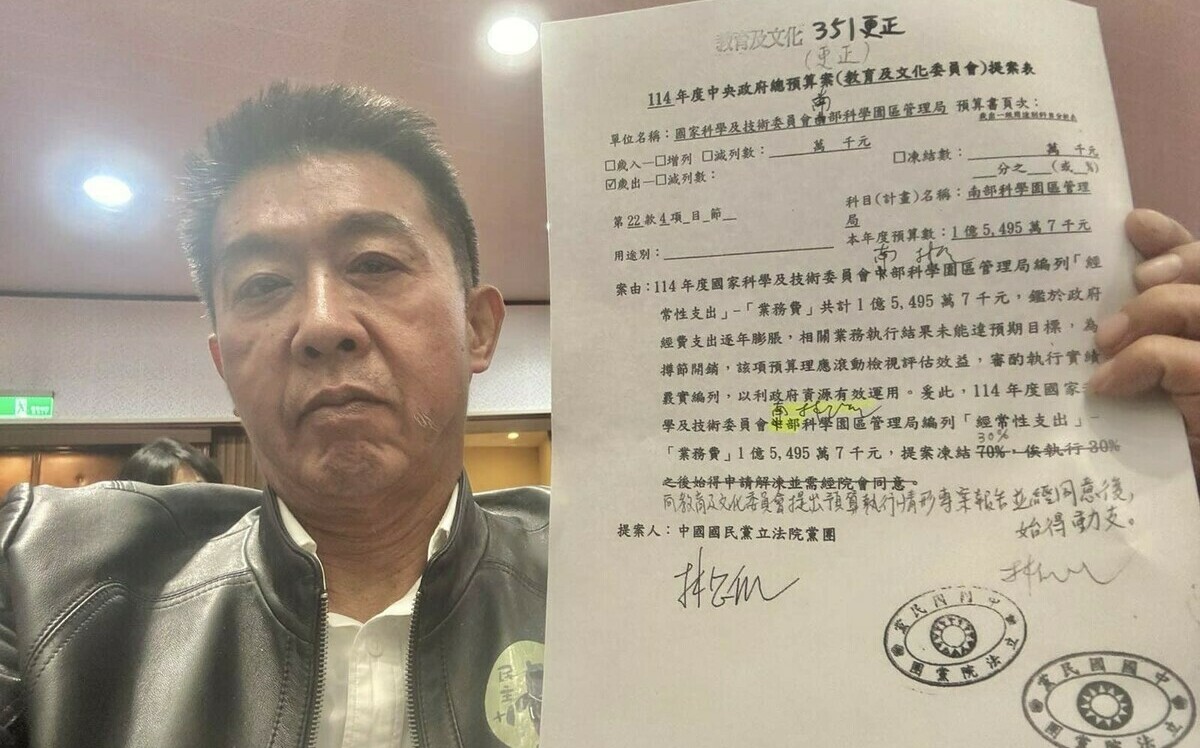 教育及文化 351更正
(更正)
114年度中央政府總預算案(教育及文化委員會)提案表
南
單位名稱：國家科學及技術委員會南部科學園區管理局 預算書頁次：
□歲入—□增列 □減列數：____萬 千元 □凍結數：____萬 千元
☑歲出—□減列數： __分之__(或__%)
第22款4項_目_節__ 科目(計畫)名稱：南部科學園區管理
局
用途別：____ 本年度預算數：1億5,495萬7千元
南
案由：114年度國家科學及技術委員會中部科學園區管理局編列「經
常性支出」-「業務費」共計1億5,495萬7千元，鑑於政府
經費支出逐年膨脹，相關業務執行結果未能達預期目標，為
撙節開銷，該項預算理應滾動檢視評估效益，審酌執行實績
覈實編列，以利政府資源有效運用。爰此，114年度國家
南
學及技術委員會中部科學園區管理局編列「經常性支出」-
30%
「業務費」1億5,495萬7千元，提案凍結70%，俟執行30%
之後始得申請解凍並需經院會同意。
向教育及文化委員會提出預算執行情形專案報告並經同意後，
始得動支。
提案人：中國國民黨立法院黨團
中國國民黨
立法院黨團
中國國民黨
立法院黨團
民主